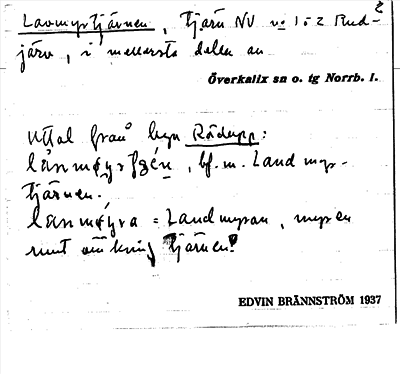 Lavmyrtjärnen, tjärn NV no 152 Rud-
järv, i mellersta delen av
Överkalix sn o. tg Norrb. l.
Uttal från byn Rödupp:
bf. m. Land myr-
tjärnen.
= Landmyran, myren
runt omkring tjärnen.
EDVIN BRÄNNSTRÖM 1937